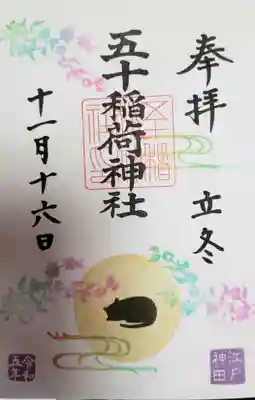 奉拝 立冬
五十稲荷神社
十一月十六日
江戸神田
令和五年